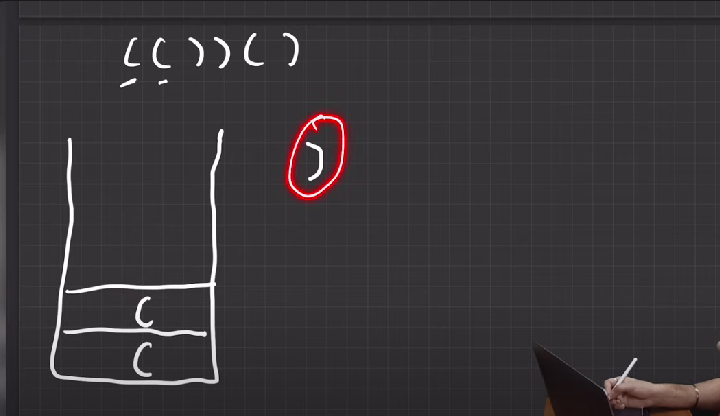 (())()
)
(
(